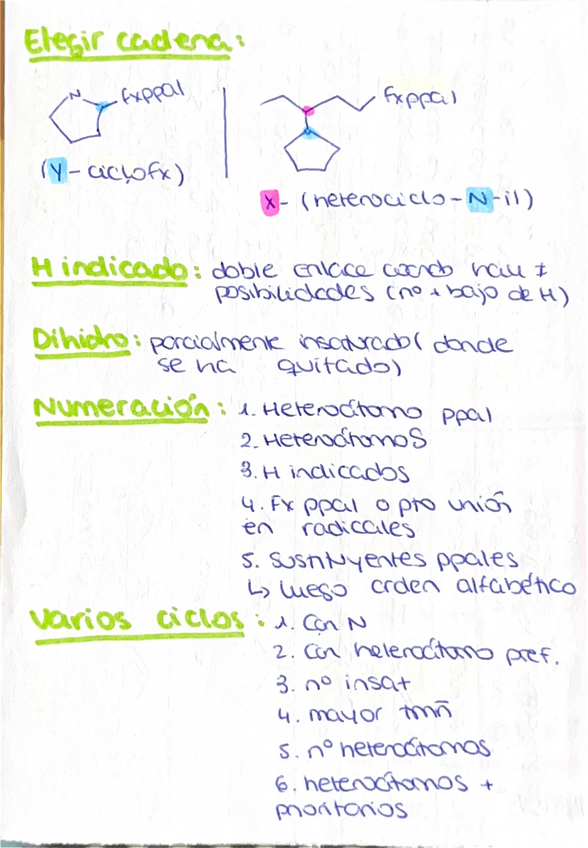 Elegir cadena:
N fxppal
fxppal
(Y-ciclofx)
X- (heterociclo-N-il)
H indicado: doble enlace cuando hau ≠
posibilidades (nº + bajo de H)
Dihidro: parcialmente insaturado( donde
se ha quitado)
Numeración: 1. Heteroátomo ppal
2. Heteroátomos
3. H indicados
4. Fx ppal o pto unión
en radicales
5. Sustituyentes ppales
↳ luego orden alfabético
Varios ciclos: 1. Con N
2. Con heteroátomo pref.
3. nº insat
4. mayor tmñ
5. nº heteroátomos
6. heteroátomos +
prioritarios